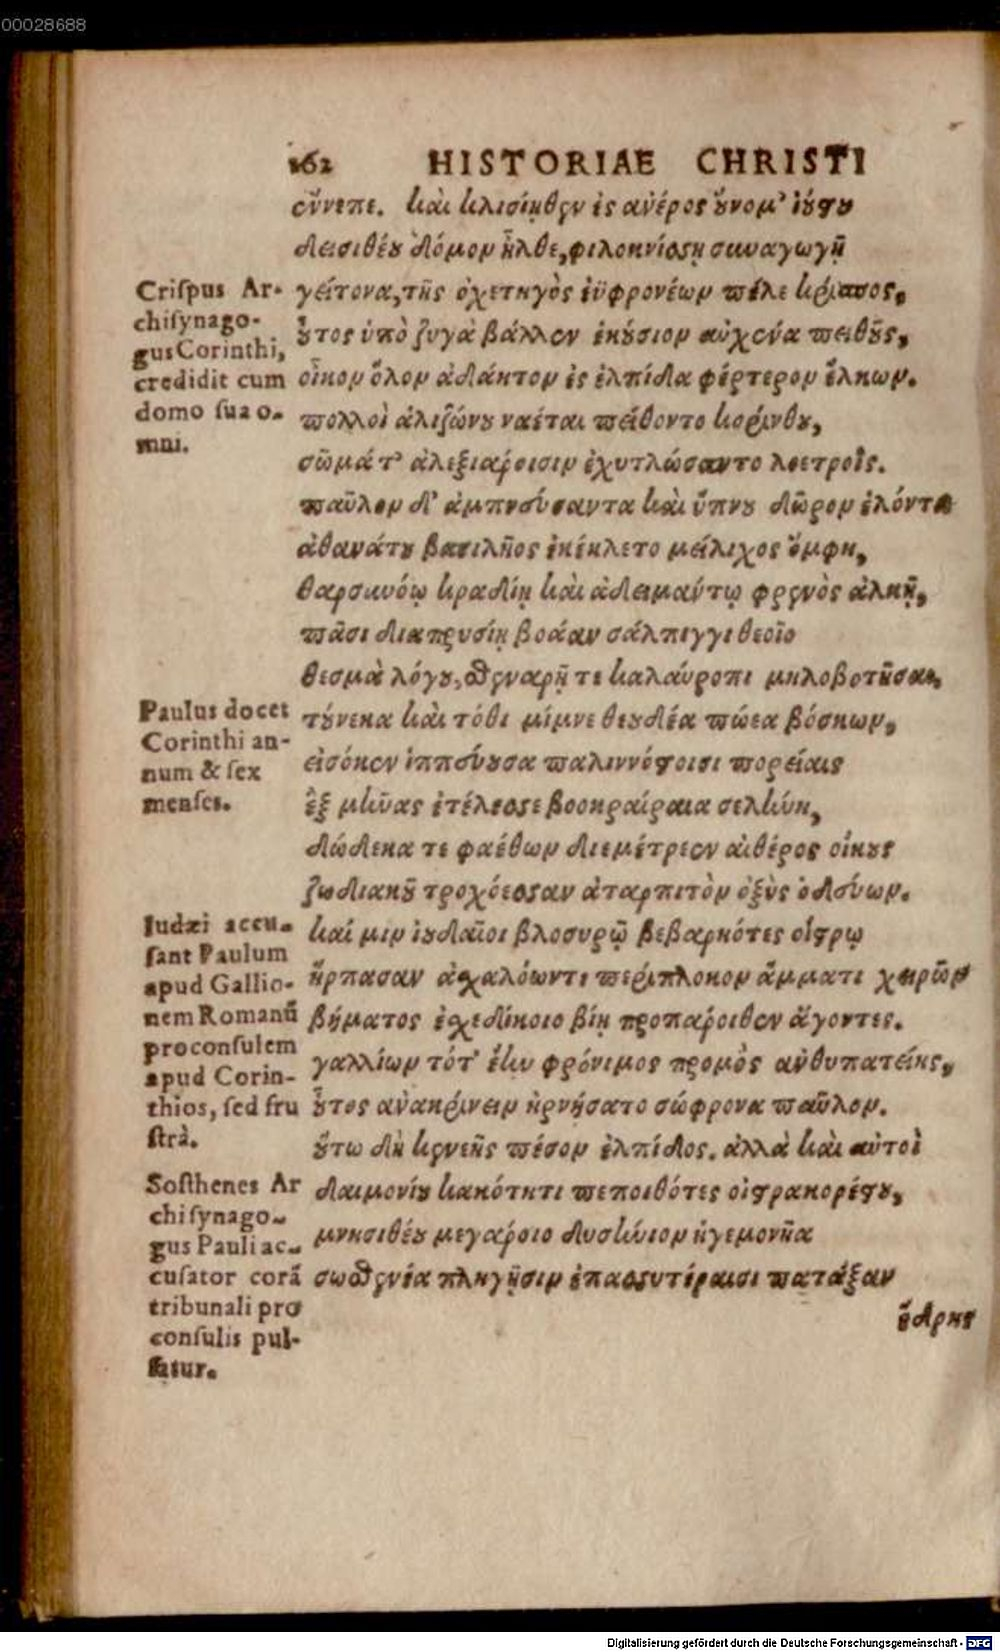 00028688
162 HISTORIAE CHRISTI
ἔννεπε. καὶ κλισίηθεν ἐς ἀνέρος οὔνομ' ἰούστου
δεισιθέου δόμον ἦλθε, φιλοκνίσσῃ συναγωγῇ
γείτονα, τῆς ὀχετηγὸς ἐϋφρονέων πέλε κρίσπος,
οὗτος ὑπὸ ζυγὰ βάλλεν ἑκούσιον αὐχένα πειθοῦς,
οἶκον ὅλον ἀδάκτον ἐς ἐλπίδα φέρτερον ἕλκων.
πολλοὶ ἁλιζώνου ναέται πείθοντο κορίνθου,
σῶμά τ' ἀλεξικάροισιν ἐχυτλώσαντο λοετροῖς.
παῦλον δ' ἀμπνεύσαντα καὶ ὕπνου δῶρον ἑλόντα
ἀθανάτου βασιλῆος ἐκέκλετο μείλιχος ὄμφη,
θαρσυνόῳ κραδίῃ καὶ ἀδειμάντῳ φρενὸς ἀλκῇ,
πᾶσι διαπρυσίῃ βοάαν σάλπιγγι θεοῖο
θεσμὰ λόγου, σθεναρῇ τε καλαύροπι μηλοβοτῆσαι,
τούνεκα καὶ τόθι μίμνε θεουδέα πώεα βόσκων,
εἰσόκεν ἱππεύουσα παλιννόστοισι πορείαις
ἓξ μῆνας ἐτέλεσσε βοοκραίραια σελήνη,
δώδεκα τε φαέθων διεμέτρεεν αἰθέρος οἴκους
ζωδιακοῦ τροχόεσσαν ἀταρπιτὸν ὀξὺς ὁδεύων.
καί μιν ἰουδαῖοι βλοσυρῷ βεβαρηκότες οἴστρῳ
ἥρπασαν ἀσχαλόωντι περίπλοκον ἅμματι χειρῶν
βήματος ἐχεδίκοιο βίῃ προπάροιθεν ἄγοντες.
γαλλίων τότ' ἔην φρόνιμος προμὸς ἀνθυπατείης,
οὗτος ἀνακρίνειν ἠρνήσατο σώφρονα παῦλον.
οὕτω δὴ κενεῆς πέσον ἐλπίδος. ἀλλὰ καὶ αὐτοὶ
δαιμονίου κακότητι πεποιθότες οἰστρακορέστου,
μνησιθέου μεγάροιο δυσήνιον ἡγεμονῆα
σωσθενέα πληγῇσιν ἐπασσυτέραισι πατάξαν
ἕδρης
Crispus Ar-
chisynago-
gus Corinthi,
credidit cum
domo sua o-
mni.
Paulus docet
Corinthi an-
num & sex
menses.
Iudæi accu-
sant Paulum
apud Gallio-
nem Romanũ
proconsulem
apud Corin-
thios, sed fru
strà.
Sosthenes Ar
chisynago-
gus Pauli ac-
cusator corã
tribunali pro
consulis pul-
satur.
Digitalisierung gefördert durch die Deutsche Forschungsgemeinschaft - DFG